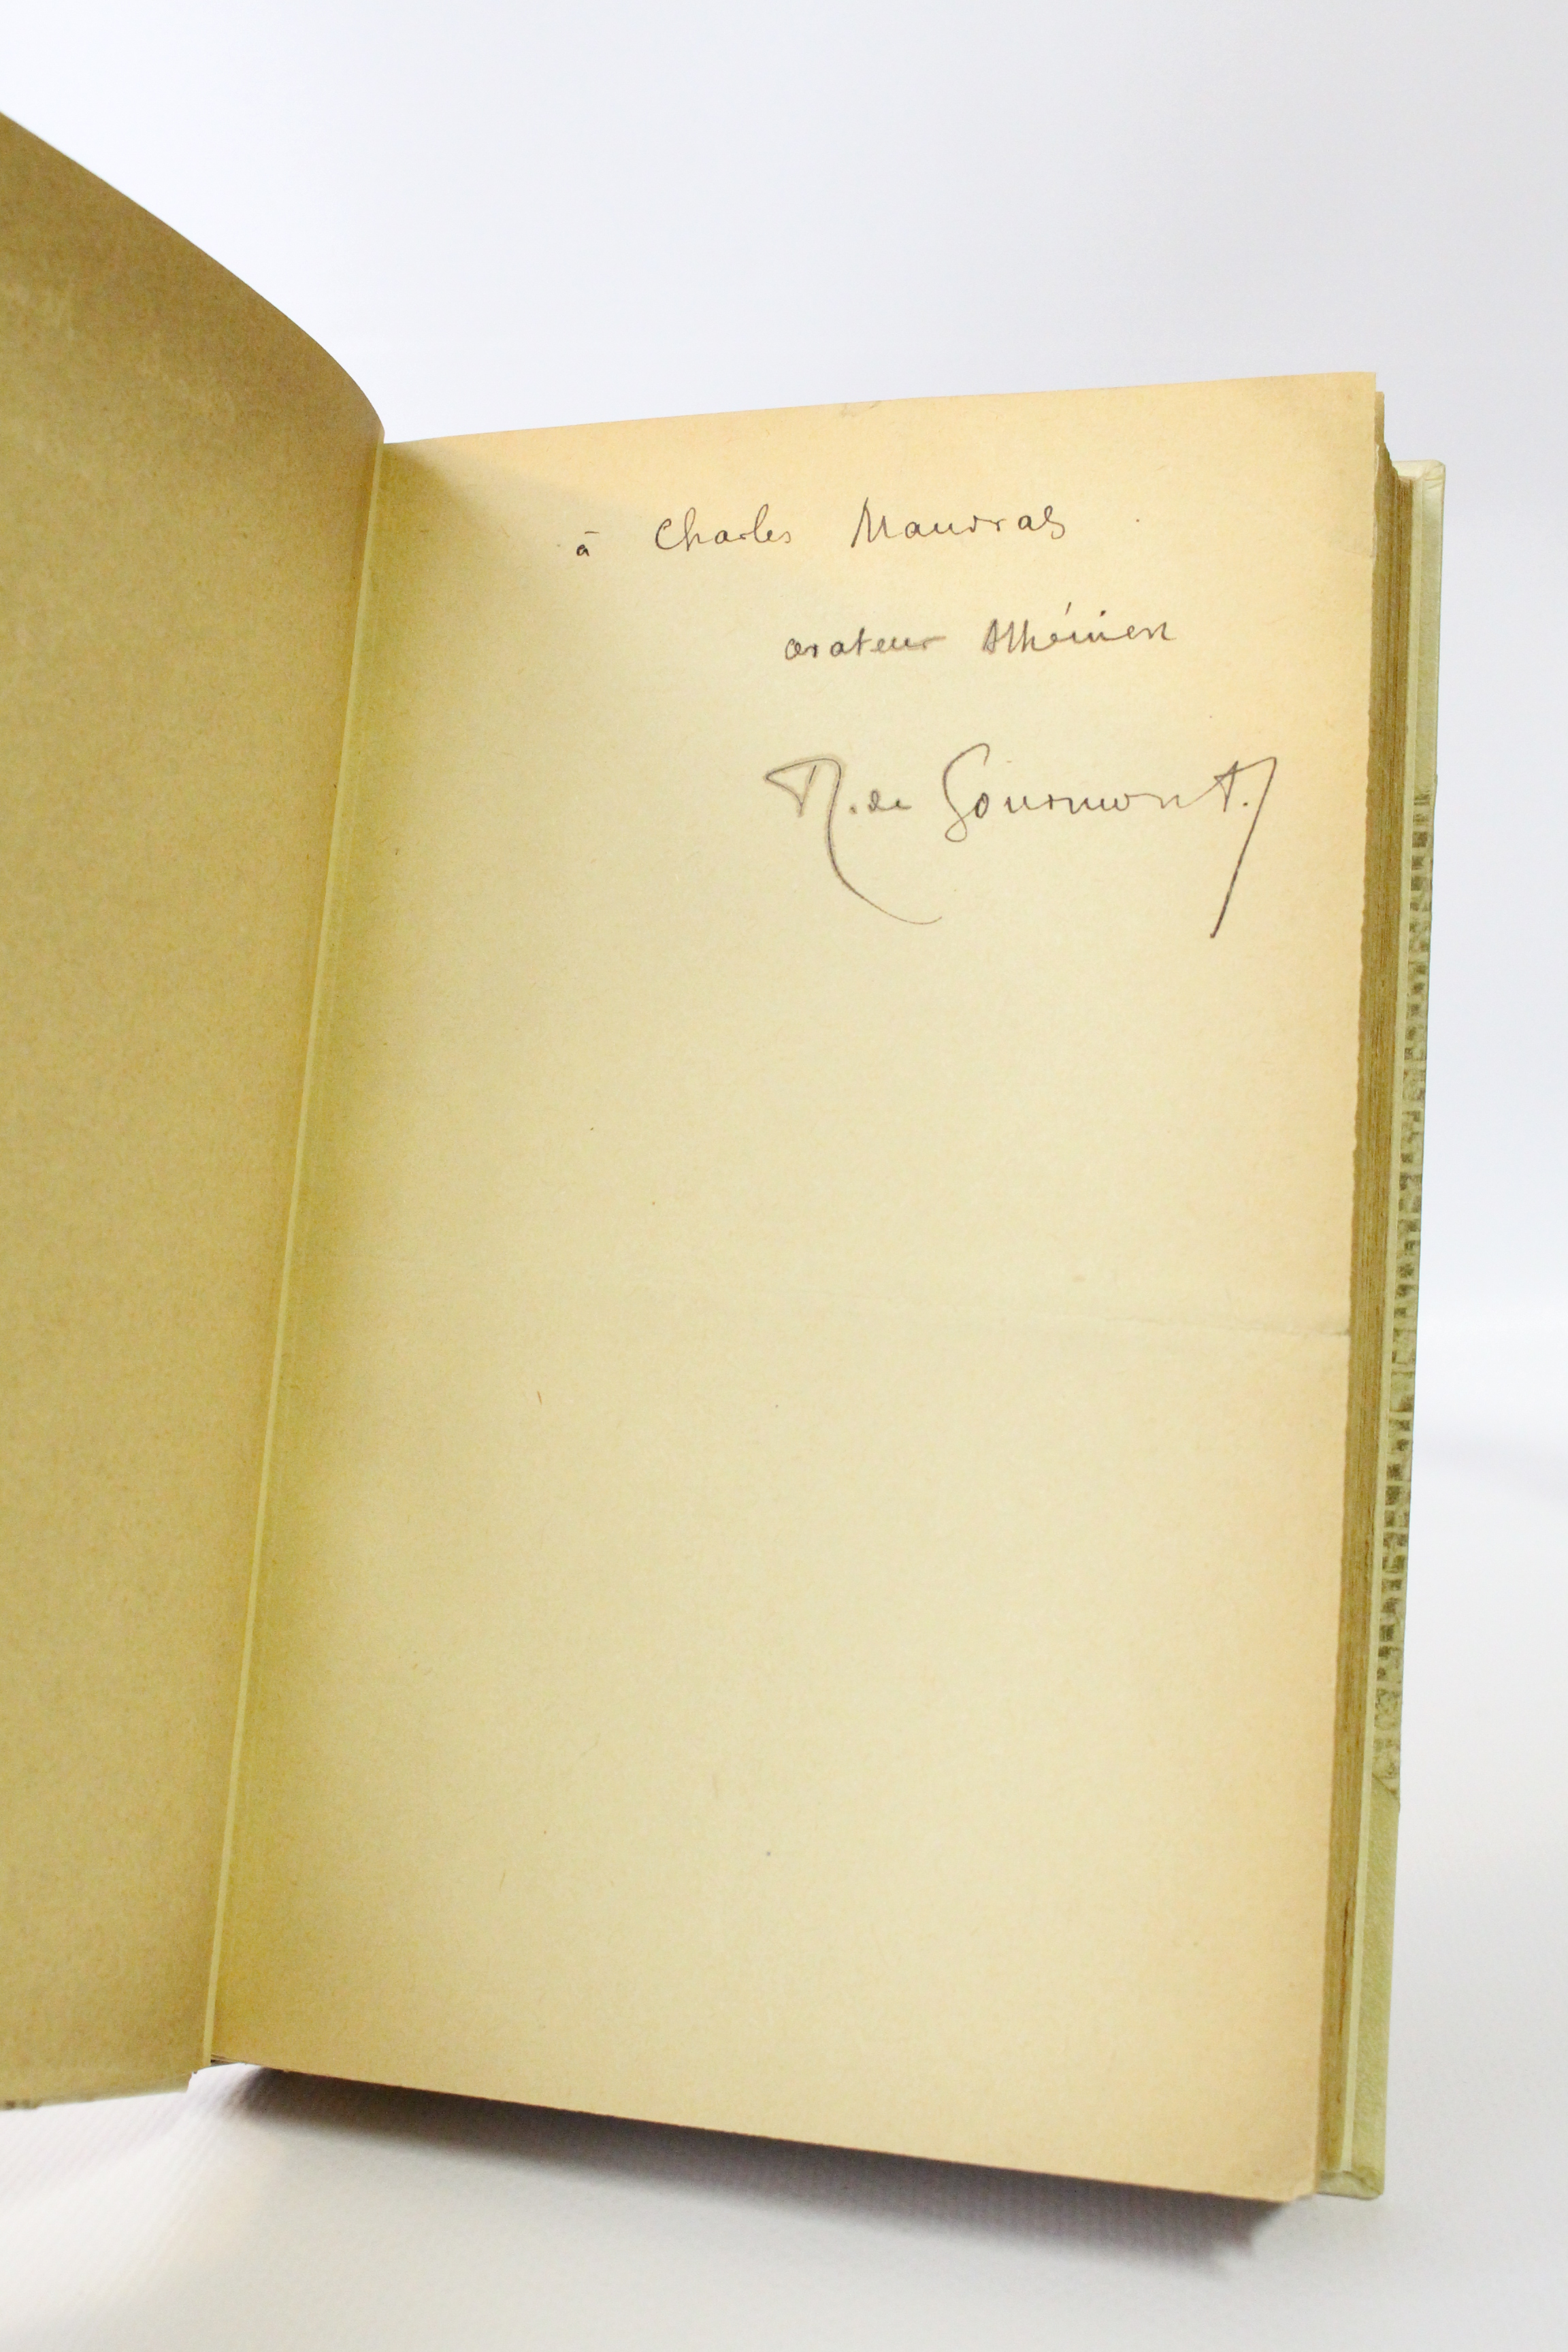 à Charles Maurras
orateur Athénien
R. de Gourmont.